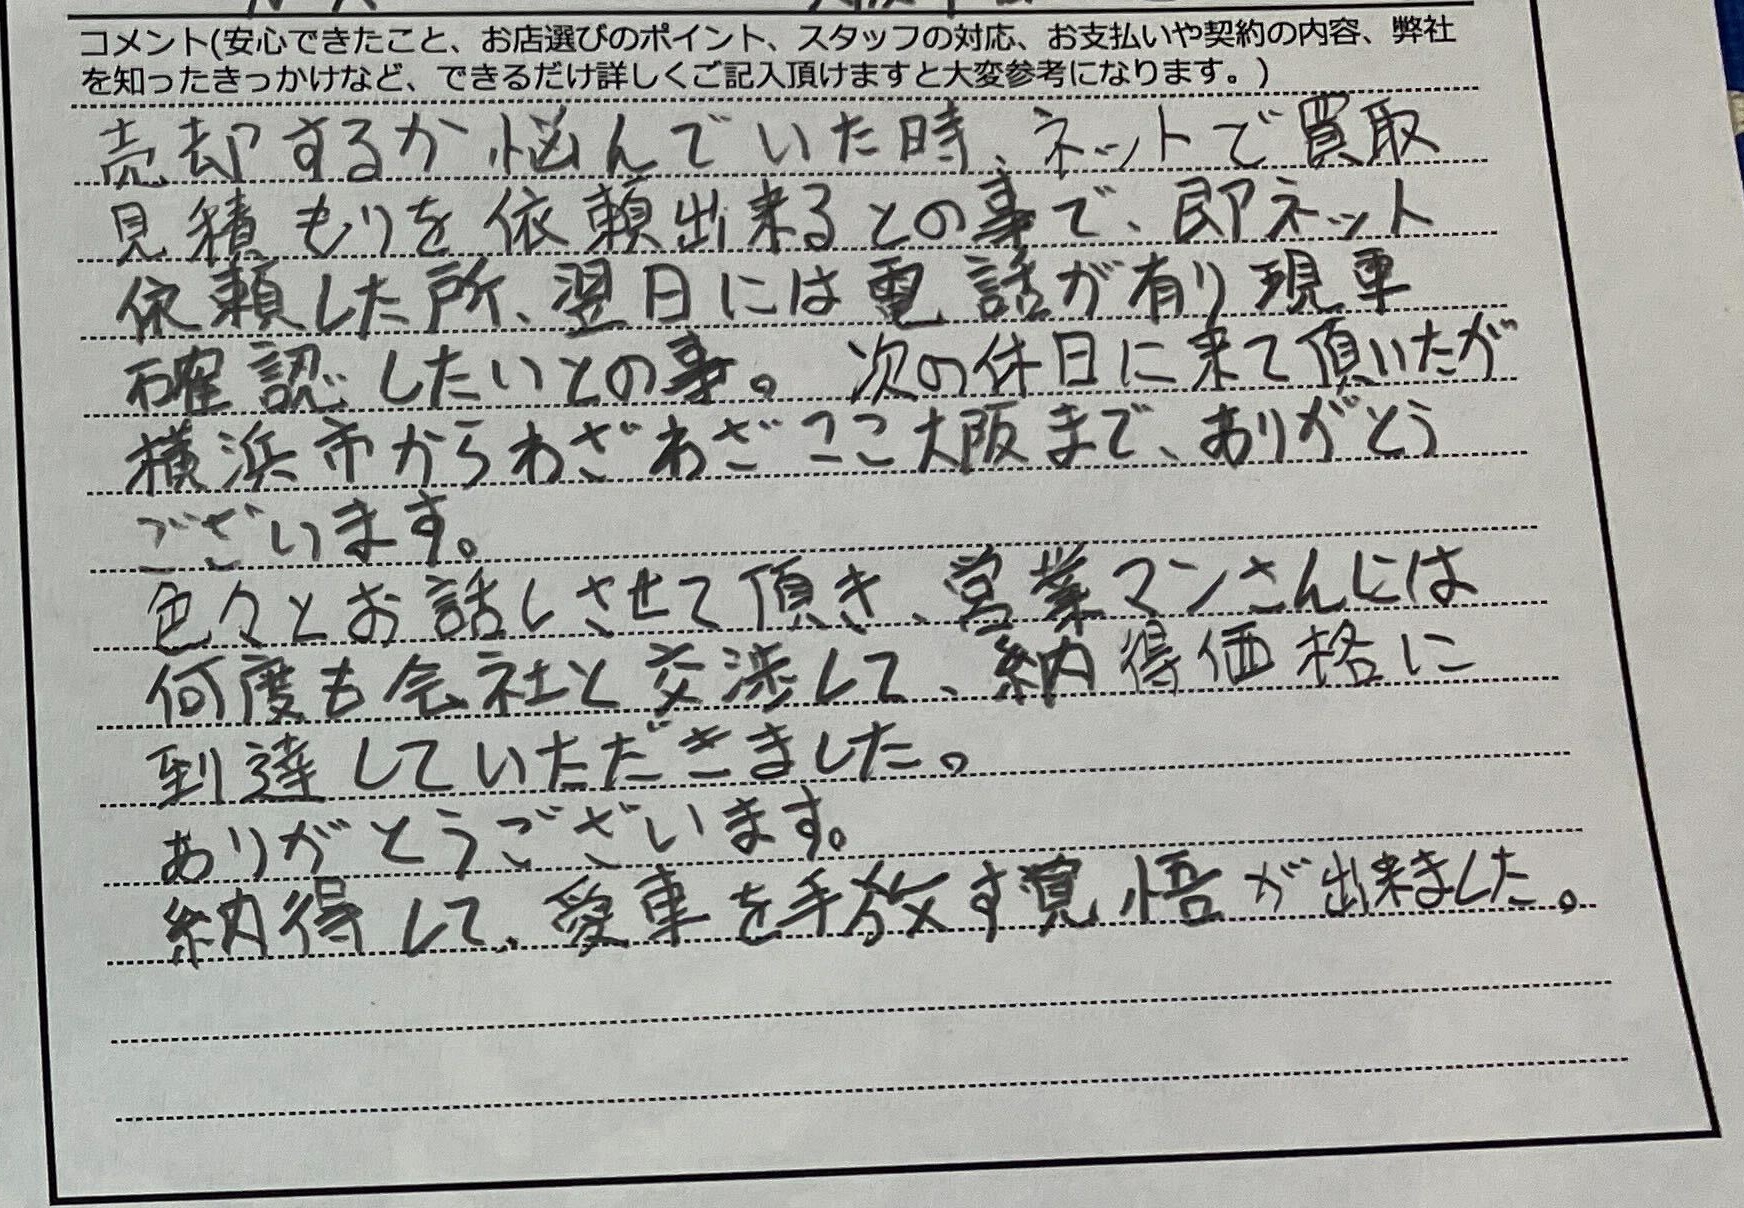 コメント(安心できたこと、お店選びのポイント、スタッフの対応、お支払いや契約の内容、弊社
を知ったきっかけなど、できるだけ詳しくご記入頂けますと大変参考になります。)
売却するか悩んでいた時、ネットで買取
見積もりを依頼出来るとの事で、即ネット
依頼した所、翌日には電話が有り現車
確認したいとの事。次の休日に来て頂いたが
横浜市からわざわざここ大阪まで、ありがとう
ございます。
色々とお話しさせて頂き、営業マンさんには
何度も会社と交渉して、納得価格に
到達していただきました。
ありがとうございます。
納得して、愛車を手放す覚悟が出来ました。